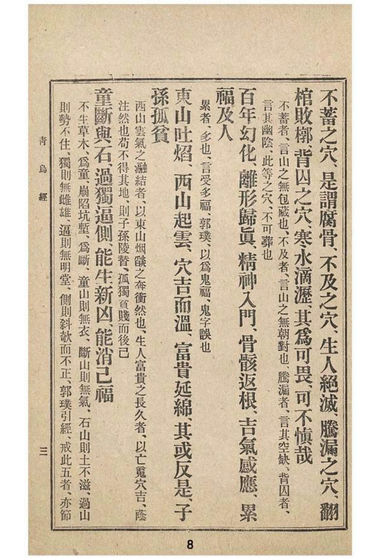 不蓄之穴、是謂腐骨、不及之穴、生人絕滅、騰漏之穴、翻
棺敗槨、背囚之穴、寒水滴瀝、其爲可畏、可不慎哉
不蓄者、言山之無包藏也、不及者、言山之無朝對也、騰漏者、言其空缺、背囚者、
言其幽陰、此等之穴、不可葬也
百年幻化、離形歸眞、精神入門、骨骸返根、吉氣感應、累
福及人
累者、多也、言受多福、郭璞、以爲鬼福、鬼字誤也
東山吐焰、西山起雲、穴吉而溫、富貴延綿、其或反是、子
孫孤貧
西山雲氣之融結者、以東山烟燄之奔衝然也、生人富貴之長久者、以亡魂穴吉、蔭
注然也、苟不得其地、則子孫陵替、孤獨貧賤而後已
童斷與石、過獨逼側、能生新凶、能消已福
不生草木、爲童、崩陷坑塹、爲斷、童山則無衣、斷山則無氣、石山則土不滋、過山
則勢不住、獨則無雌雄、逼則無明堂、側則斜欹而不正、郭璞引經、戒此五者、亦節
青烏經
三
8